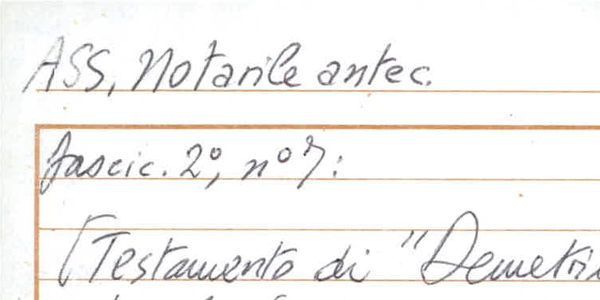 ASS, Notarile antec.
fascic. 2º, nº 7:
[Testamento di "Demetri